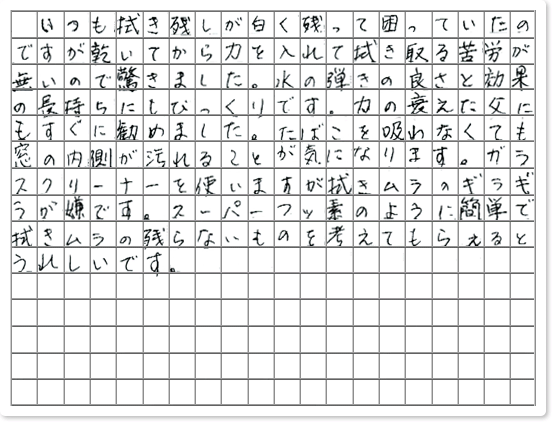 いつも拭き残しが白く残って困っていたの
ですが乾いてから力を入れて拭き取る苦労が
無いので驚きました。水の弾きの良さと効果
の長持ちにもびっくりです。力の衰えた父に
もすぐに勧めました。たばこを吸わなくても
窓の内側が汚れることが気になります。ガラ
スクリーナーを使いますが拭きムラのギラギ
ラが嫌です。スーパーフッ素のように簡単で
拭きムラの残らないものを考えてもらえると
うれしいです。